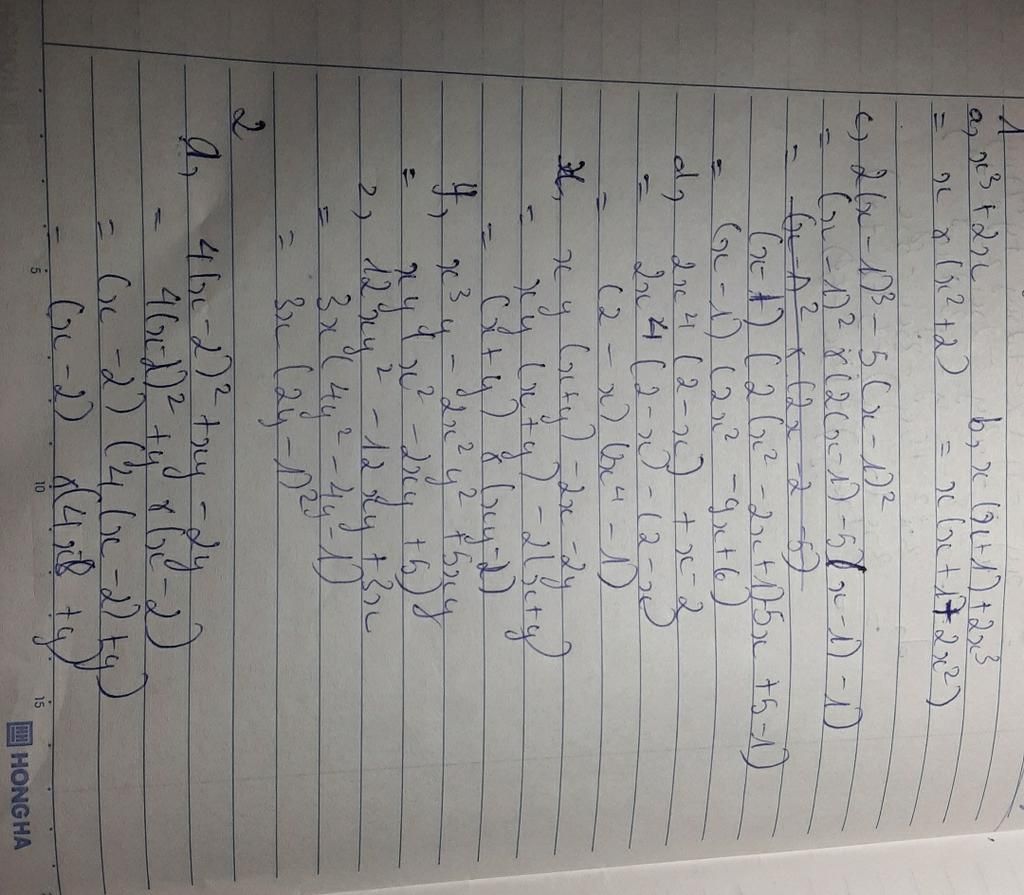 1
a, x³+2x b, x(x+1)+2x³
= x × (x²+2) = x(x+1+2x²)
c, 2(x-1)³ - 5(x-1)²
= (x-1)² × (2(x-1) - 5(x-1) -1)
= (x-1)² × (2x-2-5)
(x-1) (2(x²-2x+1)-5x+5-1)
= (x-1) (2x²-9x+6)
d, 2x⁴ (2-x) + x-2
= 2x⁴ (2-x) - (2-x)
= (2-x)(2x⁴-1)
x, xy (x+y) -2x-2y
= xy (x+y) - 2(x+y)
= (x+y) × (xy-2)
y, x³y - 2x²y² + 5xy
= xy (x²-2xy+5)
z, 12xy² - 12xy + 3x
= 3x(4y²-4y-1)
= 3x (2y-1)²
2
a, 4(x-2)² + xy - 2y
= 4(x-2)² + y × (x-2)
= (x-2) (4(x-2)+y)
= (x-2) × (4x-8+y)
HONG HA
5
10
15